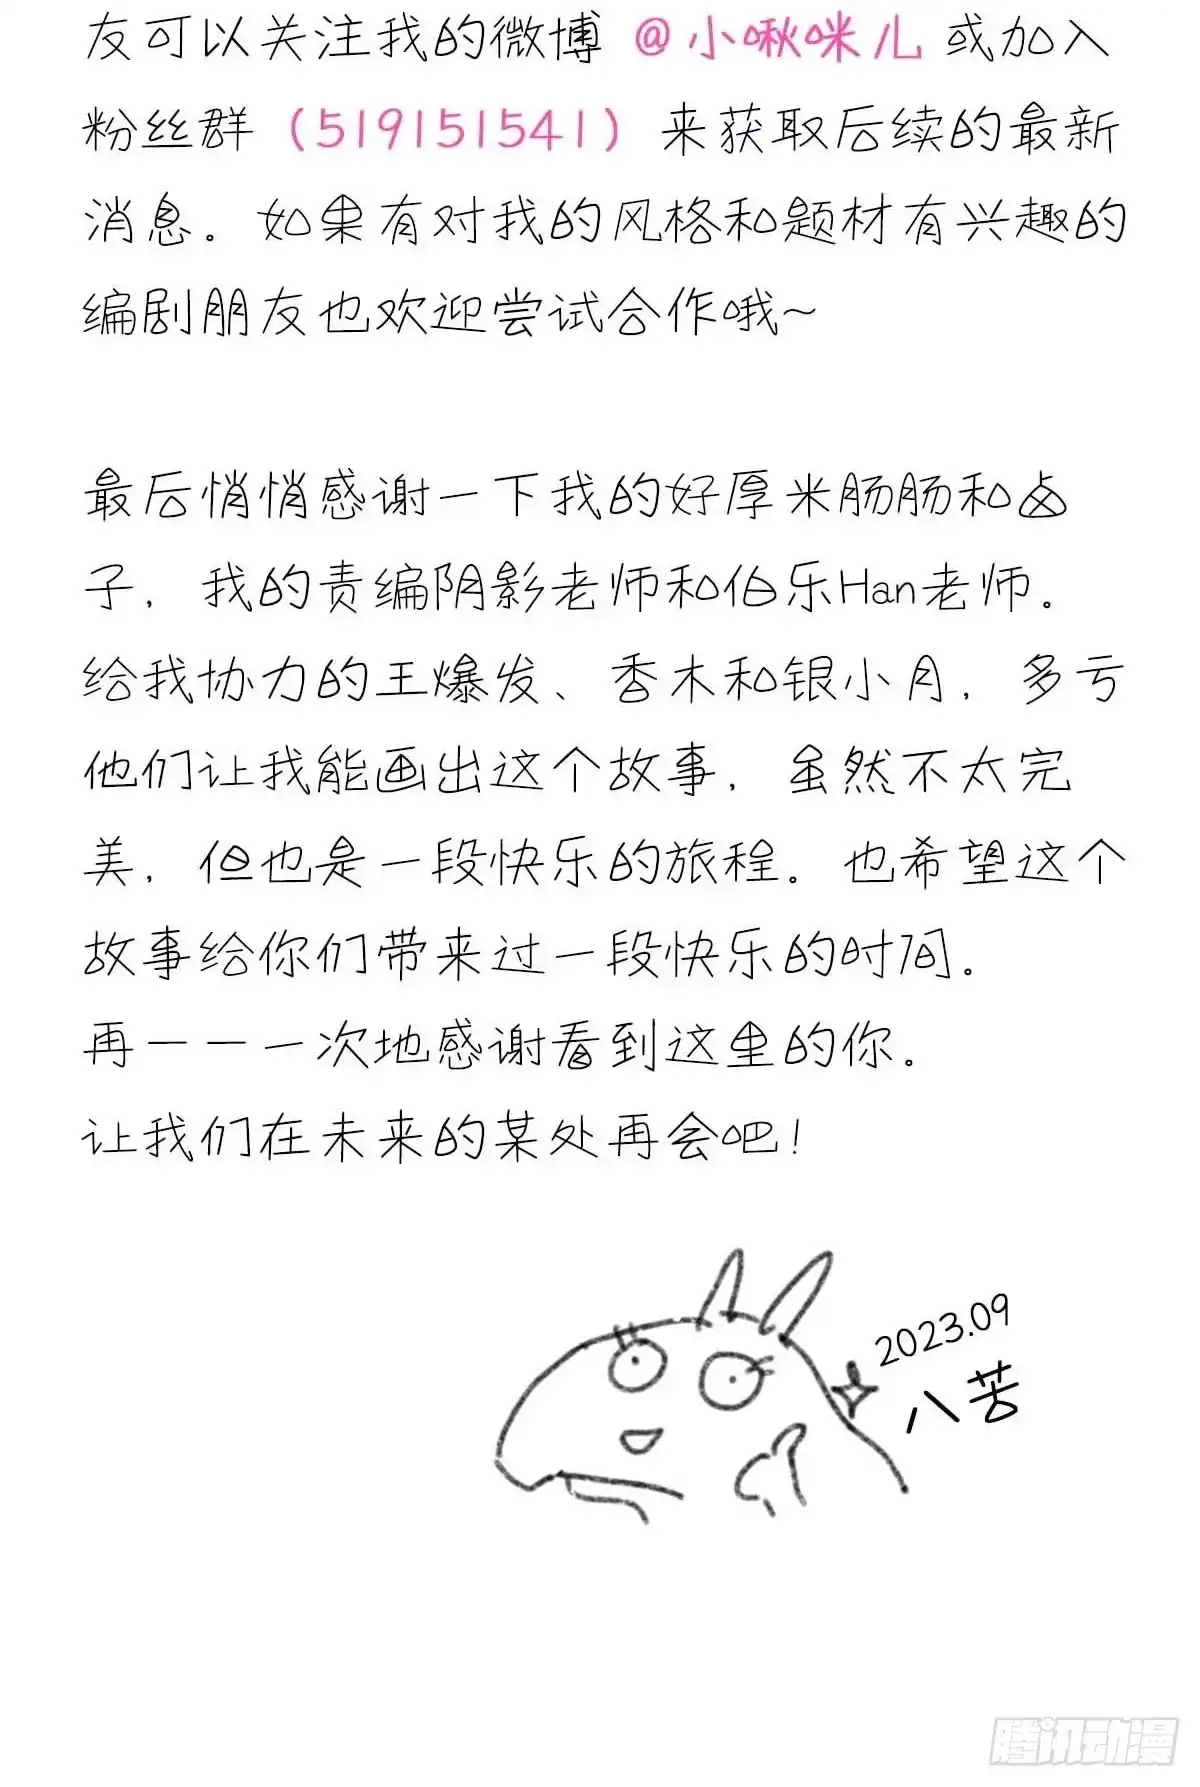 友可以关注我的微博 @小啾咪儿 或加入
粉丝群（519151541）来获取后续的最新
消息。如果有对我的风格和题材有兴趣的
编剧朋友也欢迎尝试合作哦~
最后悄悄感谢一下我的好厚米肠肠和卤
子，我的责编阴影老师和伯乐Han老师。
给我协力的王爆发、香木和银小月，多亏
他们让我能画出这个故事，虽然不太完
美，但也是一段快乐的旅程。也希望这个
故事给你们带来过一段快乐的时间。
再一一一次地感谢看到这里的你。
让我们在未来的某处再会吧！
2023.09
八苦
腾讯动漫